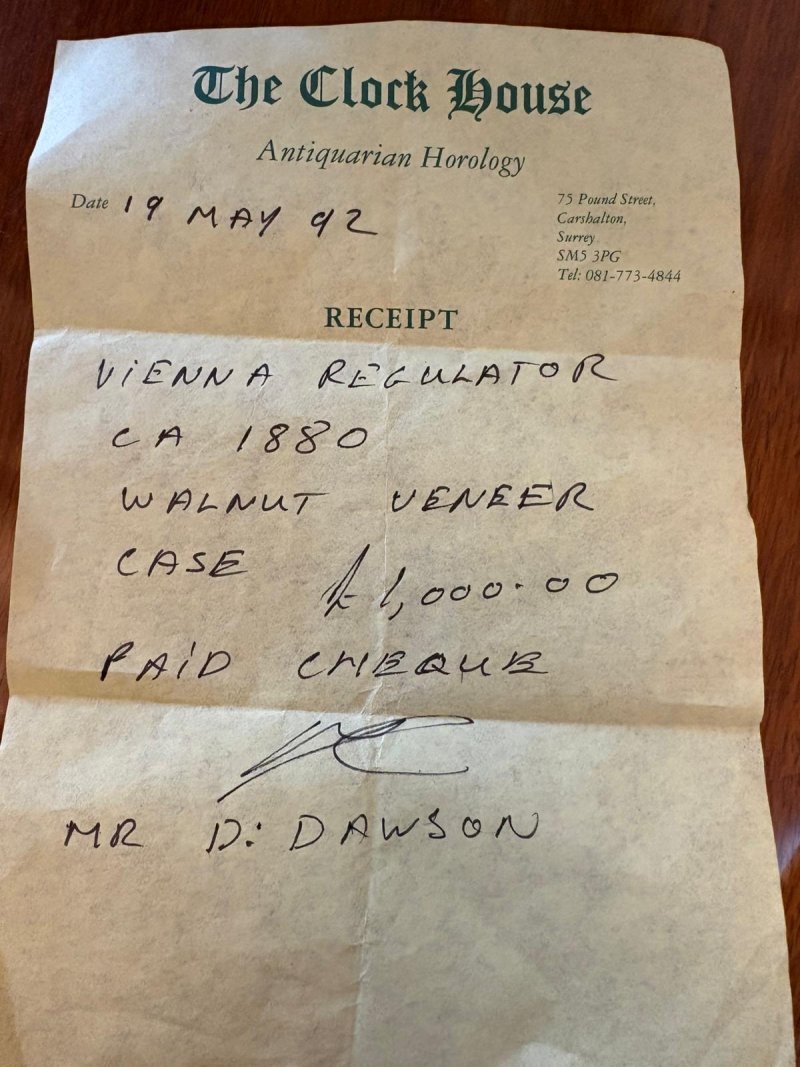 The Clock House
Antiquarian Horology
Date 19 MAY 92
75 Pound Street,
Carshalton,
Surrey
SM5 3PG
Tel: 081-773-4844
RECEIPT
VIENNA REGULATOR
CA 1880
WALNUT VENEER
CASE £1,000.00
PAID CHEQUE
MR D. DAWSON